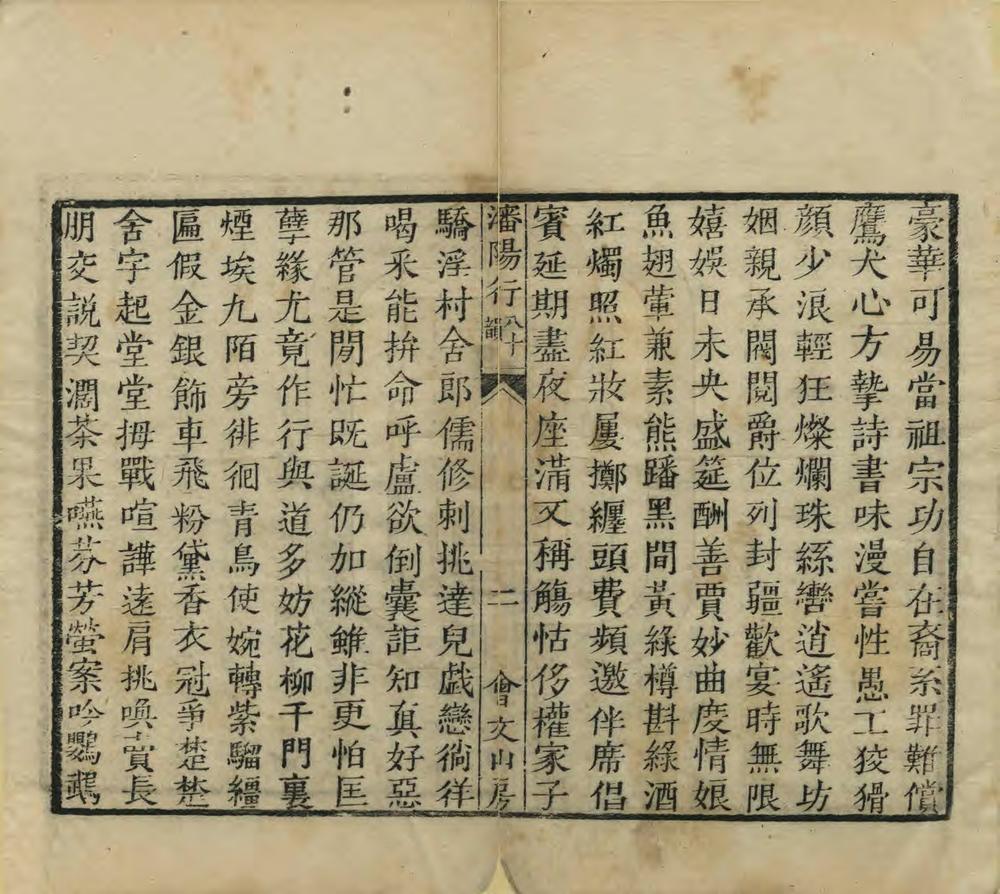 豪華可易當祖宗功自在裔系罪難償
鷹犬心方摯詩書味漫嘗性愚工狡猾
顔少浪輕狂燦爛珠絲轡逍遙歌舞坊
姻親承閥閱爵位列封疆歡宴時無限
嬉娛日未央盛筵酬善賈妙曲度情娘
魚翅葷兼素熊蹯黑間黃綠樽斟綠酒
紅燭照紅妝屢擲纏頭費頻邀伴席倡
賓延期盡夜座滿又稱觴怙侈權家子
瀋陽行 八十韻 二 會文山房
驕淫村舍郎儒修刺挑達兒戯戀徜徉
喝采能拚命呼盧欲倒囊詎知真好惡
那管是閒忙既誕仍加縱雖非更怕匡
孽緣尤竟作行與道多妨花柳千門裏
煙埃九陌旁徘徊青鳥使婉轉紫騮韁
匾假金銀飾車飛粉黛香衣冠爭楚楚
舍字起堂堂拇戰喧譁遠肩挑喚賣長
朋交説契濶茶果嚥芬芳螢案吟鸚鵡